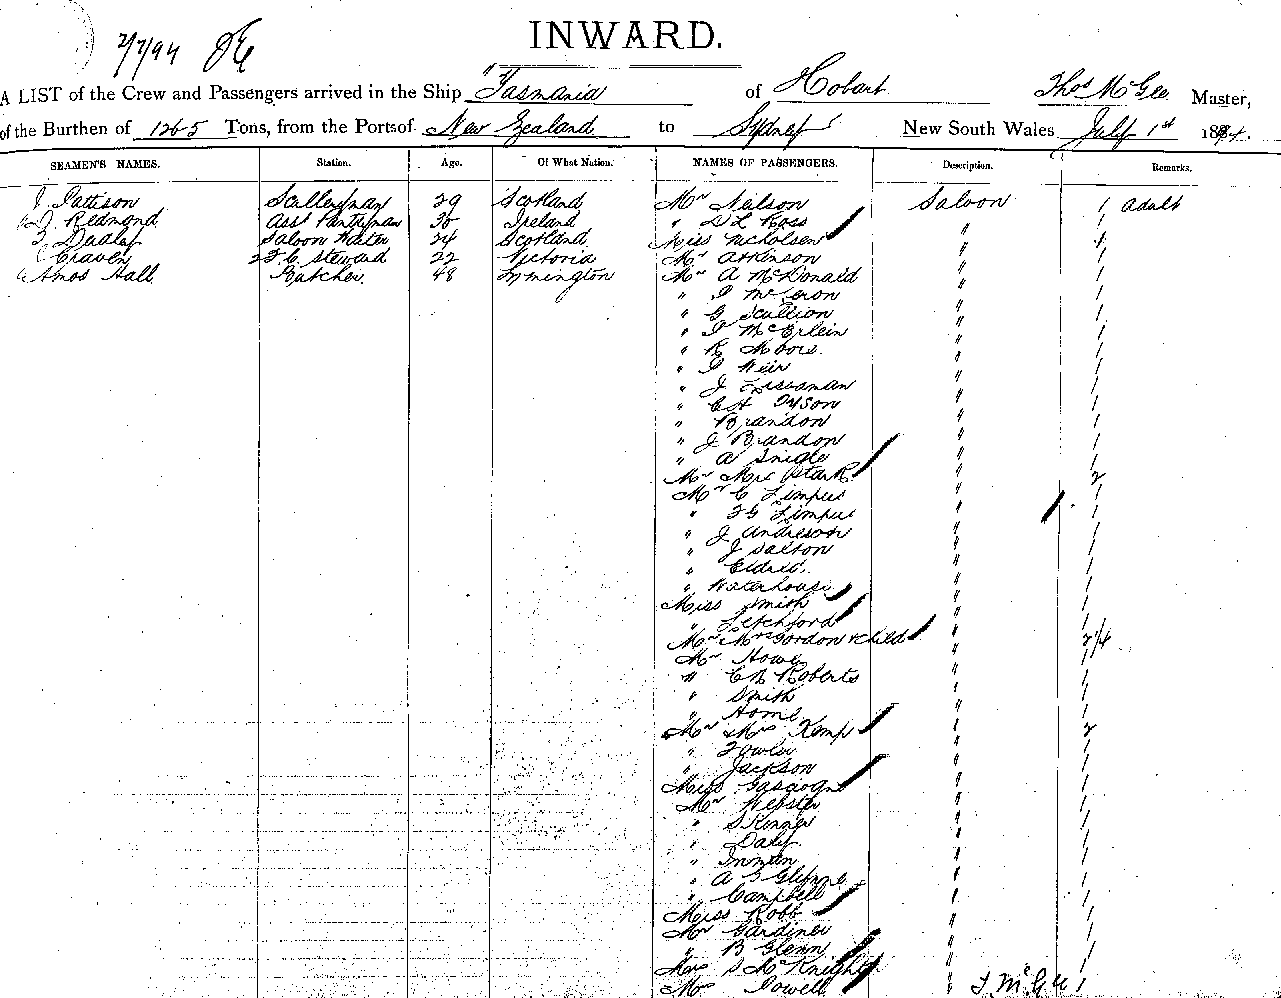 INWARD.
2/7/94
A LIST of the Crew and Passengers arrived in the Ship "Tasmania of Hobart Thos McGee Master,
of the Burthen of 1265 Tons, from the Ports of New Zealand to Sydney New South Wales July 1st 1894.
SEAMEN'S NAMES. Station. Age. Of What Nation. NAMES OF PASSENGERS. Description. Remarks.
J Pattison Sculleryman 29 Scotland Mr Nelson Saloon 1 adult
Redmond Asst Pantryman Ireland " D L Ross " 1
Dudley Saloon Waiter 24 Scotland Miss Nicholsen " 1
Craven Steward 22 Victoria Mr Atkinson " 1
Amos Hall Butcher 48 Mr A McDonald " 1
" " 1
" G Scullion " 1
" McErlein " 1
" R Moore " 1
" Weir " 1
" J " 1
" C H Tyson " 1
" Brandon " 1
" J Brandon " 1
" A " 1
Mr Mrs Stark " 2
Mr C Limpus " 1
" F G Limpus " 1
" J Anderson " 1
" J " 1
" Eldred " 1
" Waterhouse " 1
Miss Smith " 1
" Letchford " 1
Mr & Mrs Gordon & child " 2 1/4
Mr Howe " 1
" C N Roberts " 1
" Smith " 1
" Home " 1
Mr & Mrs Kemp " 2
" Fowler " 1
" Jackson " 1
Miss Gascoigne " 1
Mr Webster " 1
" Skinner " 1
" Daly " 1
" Inman " 1
" A " 1
" Campbell " 1
Miss Robb " 1
Mr Gardiner " 1
" B Glenn " 1
Mrs S McKnight " 1
Mr Powell " 1
T McGee